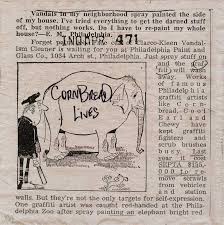 Vandals in my neighborhood spray painted the side
of my house. I've tried everything to get the darned stuff
off, but nothing works. Do I have to re-paint my whole
house?—E. M., Philadelphia.
Forget Claro-Kleen Vandal-
ism Cleaner is waiting for you at Philadelphia Paint and
Glass Co., 1034 Arch st., Philadelphia. Just spray stuff on
and the
will wash
away. Works
of famous
Philadelphia
graffiti artists
like Corn-
bread, Cool
Earl and
Chewy have
kept graffiti
fighters and
scrub brushes
busy. Last
year it cost
SEPTA
000 to re-
move scrawls
from vehicles
and station
walls. But they're not the only targets for self-expression.
One graffiti artist was caught red-handed at the Phila-
delphia Zoo after spray painting an elephant bright red
CORNBREAD
LIVES